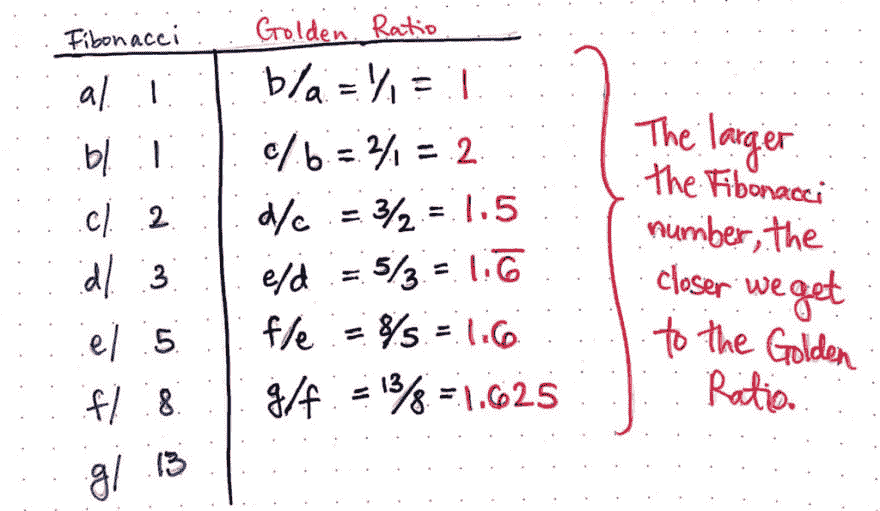 Fibonacci Golden Ratio
a/ 1 b/a = 1/1 = 1
b/ 1 c/b = 2/1 = 2
c/ 2 d/c = 3/2 = 1.5
d/ 3 e/d = 5/3 = 1.6̅
e/ 5 f/e = 8/5 = 1.6
f/ 8 g/f = 13/8 = 1.625
g/ 13
The larger
the Fibonacci
number, the
closer we get
to the Golden
Ratio.